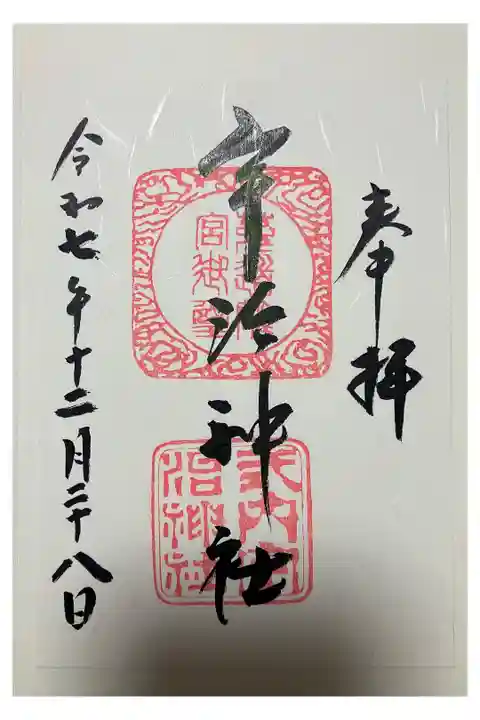 奉拝
宇治神社
式内宇治神社
令和七年十二月二十八日